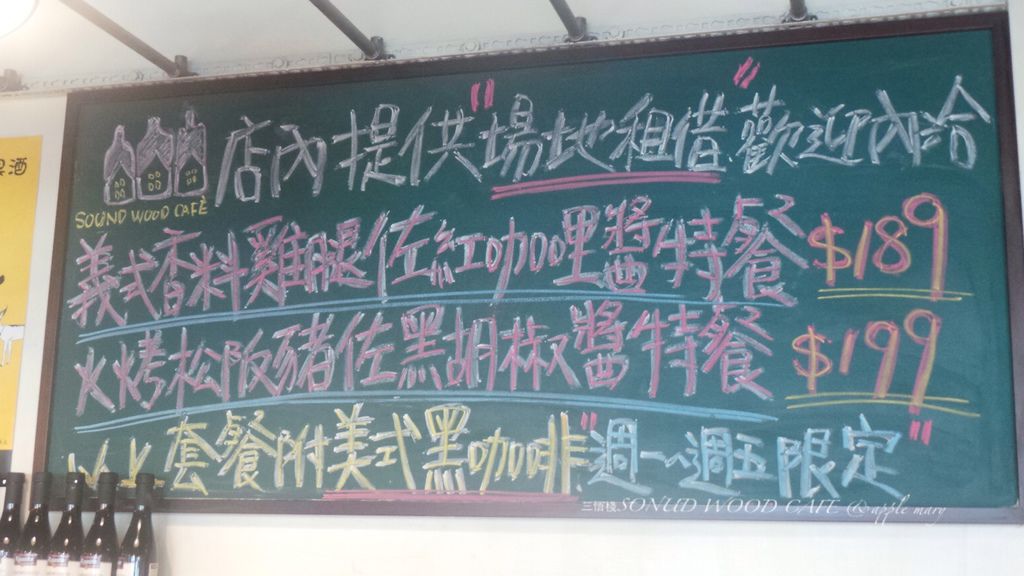 店內提供"場地租借"歡迎內洽
SOUND WOOD CAFÈ
義式香料雞腿佐紅咖哩醬特餐 $189
火烤松阪豬佐黑胡椒醬特餐 $199
以上套餐附美式黑咖啡"週一~週五限定"
三悟棧.SONUD WOOD CAFE @apple mary
酒